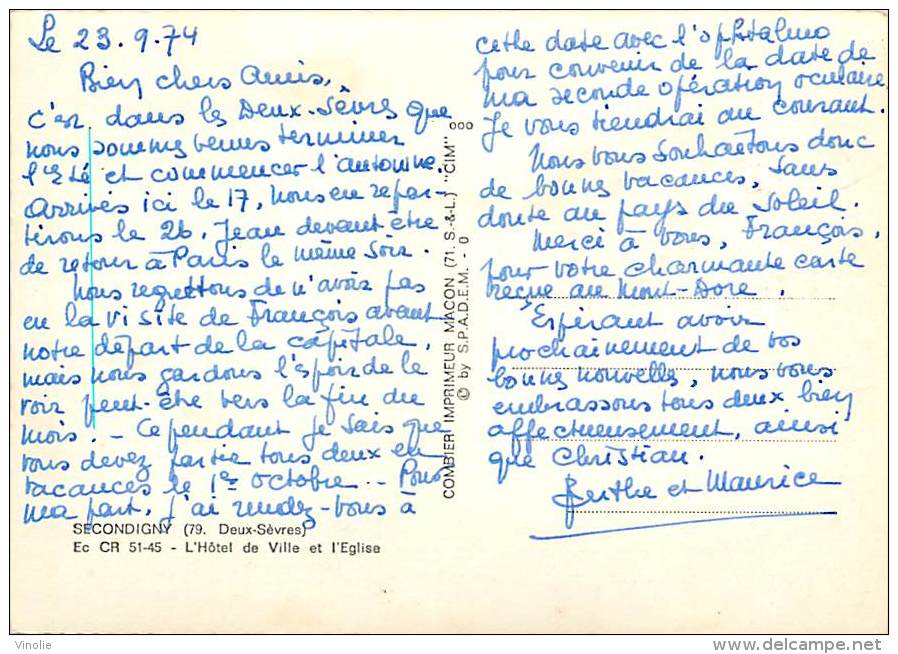 Le 23.9.74
Bien chers Amis,
C'est dans les Deux-Sèvres que
nous sommes venus terminer
l'Eté et commencer l'automne.
Arrivés ici le 17, nous en repar-
tirons le 26, Jean devant être
de retour à Paris le même soir.
Nous regrettons de n'avoir pas
eu la visite de François avant
notre départ de la capitale,
mais nous gardons l'espoir de le
voir peut-être vers la fin du
mois. - Cependant je sais que
vous devez partir tous deux en
vacances le 1er octobre. - Pour
ma part, j'ai rendez-vous à
SECONDIGNY (79. Deux-Sèvres)
Ec CR 51-45 - L'Hôtel de Ville et l'Eglise
000
COMBIER IMPRIMEUR MACON (71. S.-&-L.) "CIM"
© by S.P.A.D.E.M. - 0
cette date avec l'ophtalmo
pour convenir de la date de
ma seconde opération oculaire
Je vous tiendrai au courant.
Nous vous souhaitons donc
de bonnes vacances, sans
doute au pays du Soleil.
Merci à vous, François,
pour votre charmante carte
reçue au Mont-Dore.
Espérant avoir
prochainement de vos
bonnes nouvelles, nous vous
embrassons tous deux bien
affectueusement, ainsi
que Christian.
Berthe et Maurice
Vinolie
www.delcampe.net